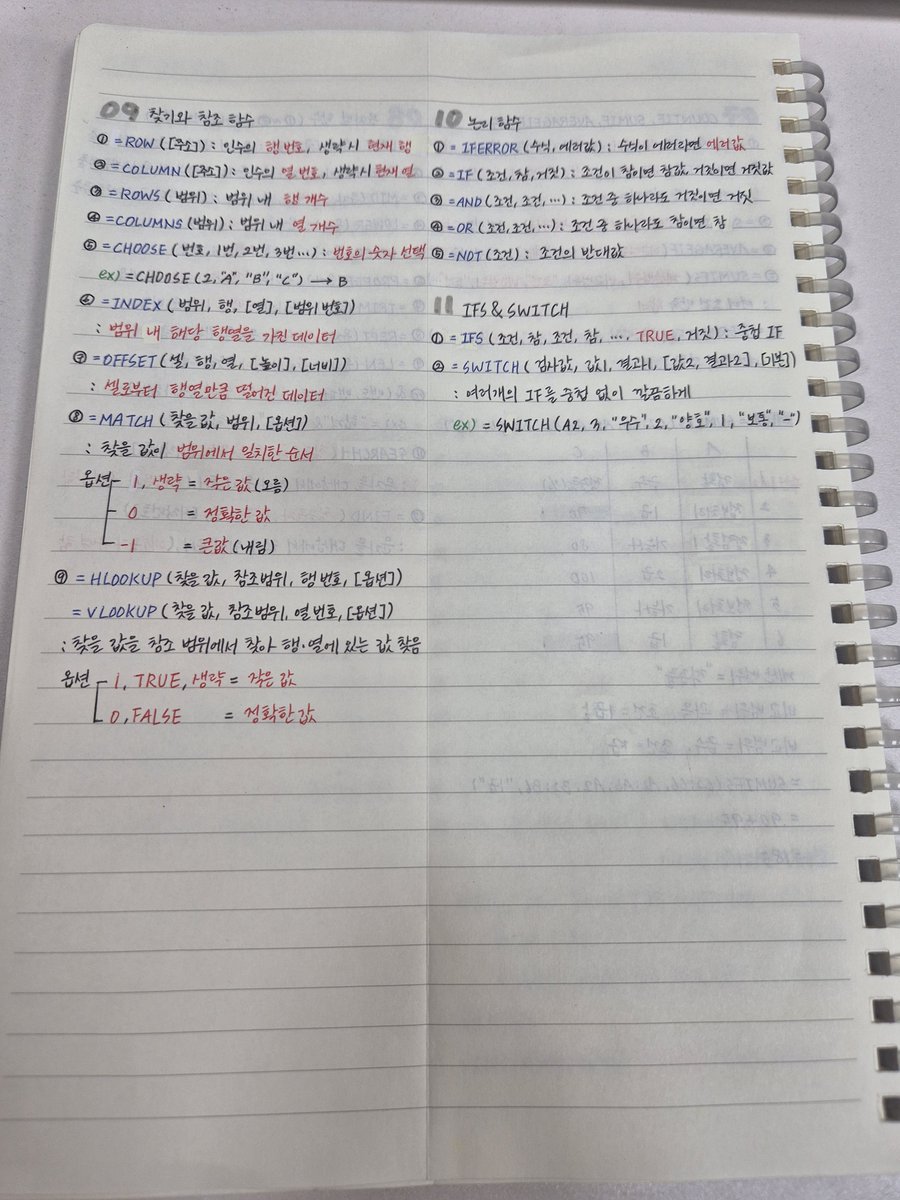 09 찾기와 참조 함수
① =ROW([주소]) : 인수의 행 번호, 생략시 현재 행
② =COLUMN([주소]) : 인수의 열 번호, 생략시 현재 열
③ =ROWS(범위) : 범위 내 행 개수
④ =COLUMNS(범위) : 범위 내 열 개수
⑤ =CHOOSE(번호, 1번, 2번, 3번 …) : 번호의 숫자 선택
ex) =CHOOSE(2, "A", "B", "C") → B
⑥ =INDEX(범위, 행, [열], [범위 번호])
: 범위 내 해당 행열을 가진 데이터
⑦ =OFFSET(셀, 행, 열, [높이], [너비])
: 셀로부터 행열만큼 떨어진 데이터
⑧ =MATCH(찾을 값, 범위, [옵션])
: 찾을 값이 범위에서 일치한 순서
옵션 1, 생략 = 작은 값(오름)
0 = 정확한 값
-1 = 큰값(내림)
⑨ =HLOOKUP(찾을 값, 참조범위, 행 번호, [옵션])
=VLOOKUP(찾을 값, 참조범위, 열 번호, [옵션])
: 찾을 값을 참조 범위에서 찾아 행·열에 있는 값 찾음
옵션 1, TRUE, 생략 = 작은 값
0, FALSE = 정확한 값
10 논리 함수
① =IFERROR(수식, 에러값) : 수식이 에러라면 에러값
② =IF(조건, 참, 거짓) : 조건이 참이면 참값, 거짓이면 거짓값
③ =AND(조건, 조건, …) : 조건 중 하나라도 거짓이면 거짓
④ =OR(조건, 조건, …) : 조건 중 하나라도 참이면 참
⑤ =NOT(조건) : 조건의 반대값
11 IFS & SWITCH
① =IFS(조건, 참, 조건, 참, …, TRUE, 거짓) : 중첩 IF
② =SWITCH(검사값, 값1, 결과1, [값2, 결과2], [기본])
: 여러개의 IF를 중첩 없이 깔끔하게
ex) =SWITCH(A2, 3, "우수", 2, "양호", 1, "보통", "-")